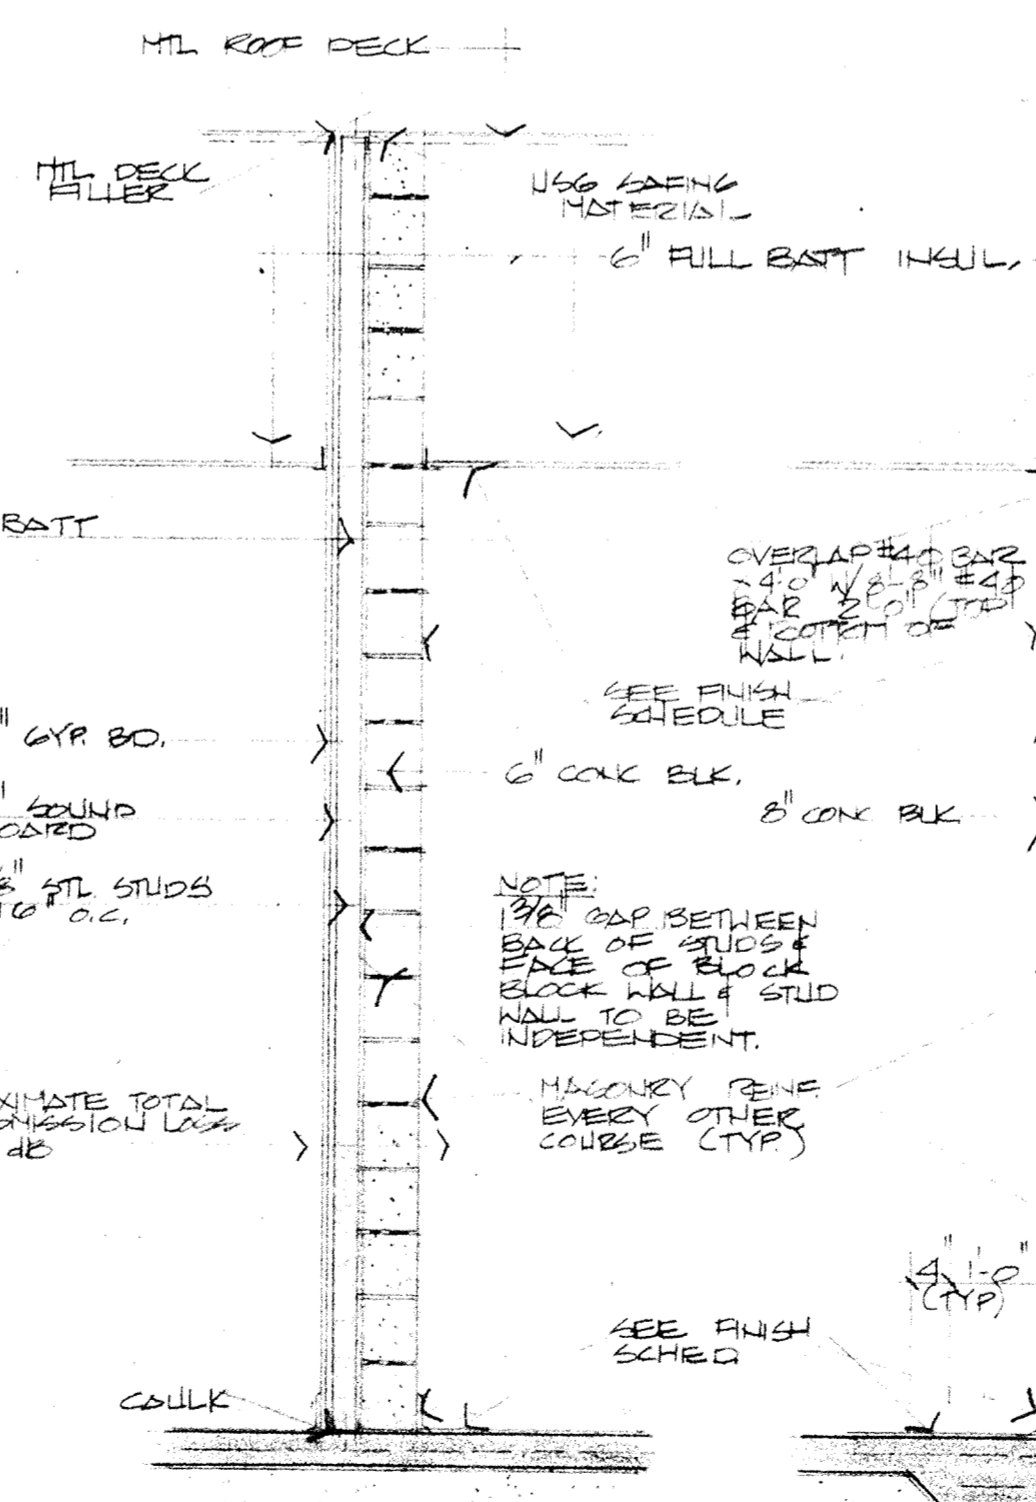 MTL ROOF DECK
MTL DECK
FILLER
USG SAFING
MATERIAL
6" FULL BATT INSUL.
BATT
OVERLAP #4Ø BAR
4'0" W/ 8'-8" #4Ø
BAR 2'0" (TOP
& BOTTOM OF
WALL.
SEE FINISH
SCHEDULE
" GYP. BD.
6" CONC BLK.
" SOUND
OARD
8" CONC BLK
8" STL. STUDS
16" O.C.
NOTE:
1 3/8" GAP BETWEEN
BACK OF STUDS &
FACE OF BLOCK
BLOCK WALL & STUD
WALL TO BE
INDEPENDENT.
XIMATE TOTAL
SMISSION LOSS
dB
MASONRY REINF.
EVERY OTHER
COURSE (TYP.)
4" 1'-0"
(TYP)
SEE FINISH
SCHED
CAULK